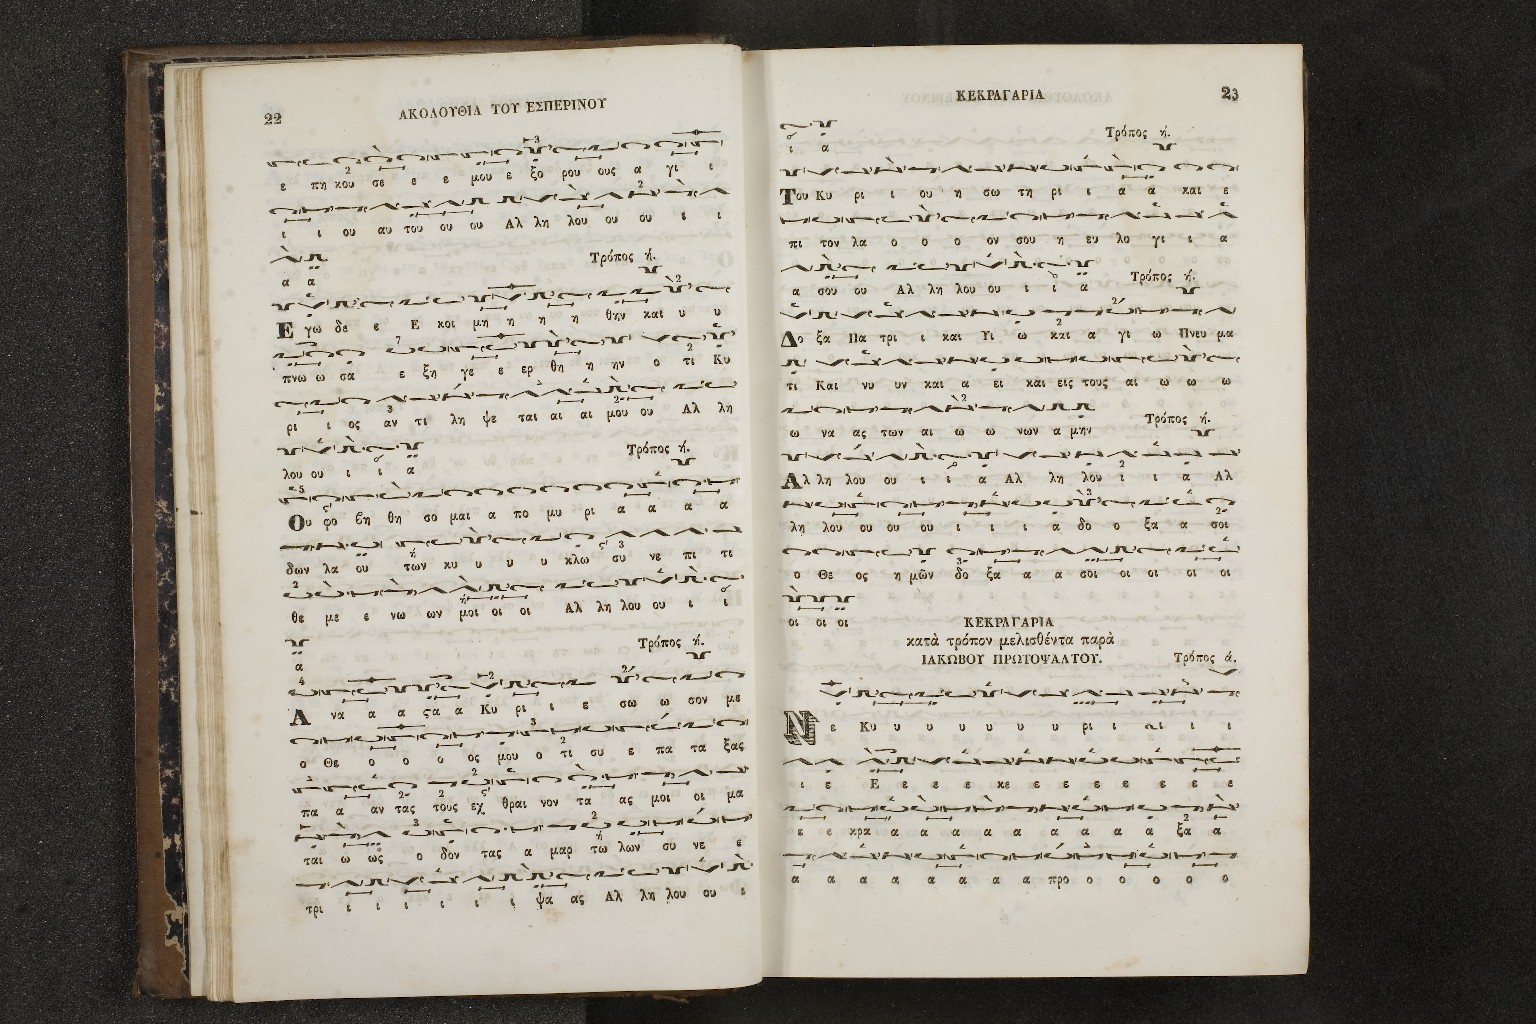 22
ΑΚΟΛΟΥΘΙΑ ΤΟΥ ΕΣΠΕΡΙΝΟΥ
ε πη κου σε ε ε μου ε ξο ρου ους α γι ι
ι ι ου αυ του ου ου Αλ λη λου ου ου ι ι
α α
Τρόπος ή.
Ε γω δε ε Ε κοι μη η η η θην και υ υ
πνω ω σα ε ξη γε ε ερ θη η ην ο τι Κυ
ρι ι ος αν τι λη ψε ται αι αι μου ου Αλ λη
λου ου ι ι α
Τρόπος ή.
Ου φο βη θη σο μαι α πο μυ ρι α α α α
δων λα ου των κυ υ υ υ κλω συ νε πι τι
θε με ε νω ων μοι οι οι Αλ λη λου ου ι ι
α
Τρόπος ή.
Α να α α ςα α Κυ ρι ι ε σω ω σον με
ο Θε ο ο ο ος μου ο τι συ ε πα τα ξας
πα α αν τας τους εχ θραι νον τα ας μοι οι μα
ται ω ως ο δον τας α μαρ τω λων συ νε ε
τρι ι ι ι ι ι ι ψα ας Αλ λη λου ου ι
ΚΕΚΡΑΓΑΡΙΑ
23
ι α
Τρόπος ή.
Του Κυ ρι ι ου η σω τη ρι ι α α και ε
πι τον λα ο ο ο ον σου η ευ λο γι ι α
α σου ου Αλ λη λου ου ι ι α
Τρόπος ή.
Δο ξα Πα τρι ι και Υι ω και α γι ω Πνευ μα
τι Και νυ υν και α ει και εις τους αι ω ω ω
ω να ας των αι ω ω νων α μην
Τρόπος ή.
Αλ λη λου ου ι ι α Αλ λη λου ι ι α Αλ
λη λου ου ου ου ι ι ι ι α δο ο ξα α σοι
ο Θε ος η μῶν δο ξα α α σοι οι οι οι οι
οι οι οι
ΚΕΚΡΑΓΑΡΙΑ
κατὰ τρόπον μελισθέντα παρὰ
ΙΑΚΩΒΟΥ ΠΡΩΤΟΨΑΛΤΟΥ.
Τρόπος ά.
Ν ε Κυ υ υ υ υ υ υ ρι ι ι ι ι
ι ε Ε ε ε ε κε ε ε ε ε ε ε ε
ε ε κρα α α α α α α α α α ξα α
α α α α α α α α προ ο ο ο ο ο